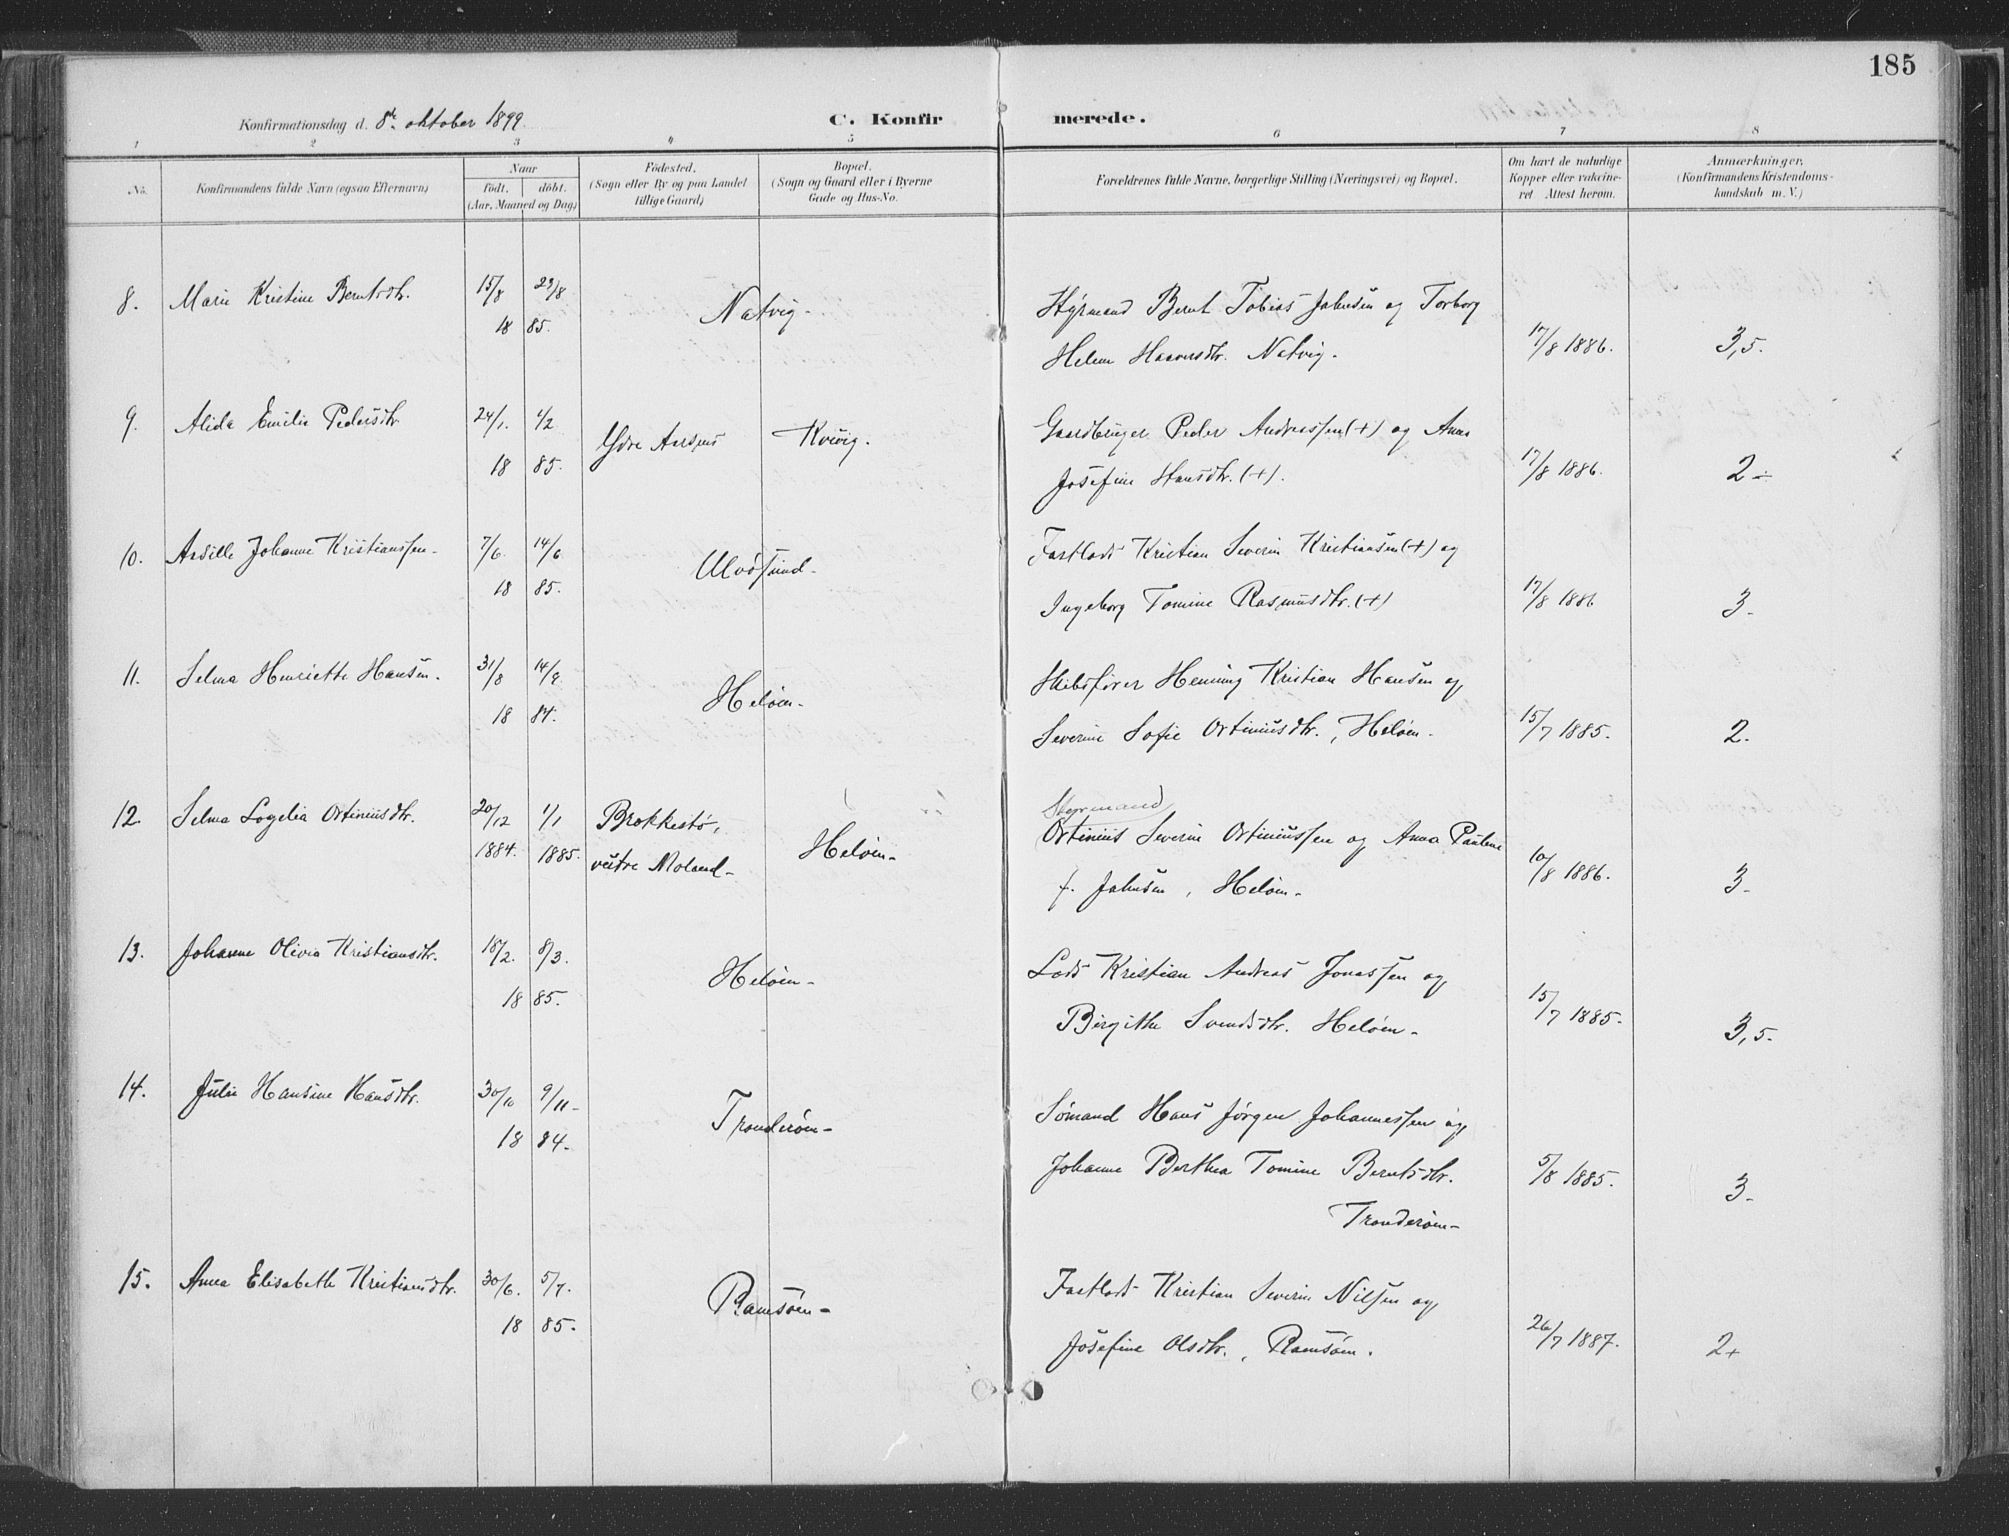 185
Konfirmationsdag d. 8de oktober 1899.
C. Konfirmerede.
1 2 3 4 5 6 7 8
No. Konfirmandens fulde Navn (ogsaa Efternavn) Naar født. døbt. (Aar, Maaned og Dag) Fødested. (Sogn eller By og paa Landet tillige Gaard) Bopæl. (Sogn og Gaard eller i Byerne Gade og Hus-No. Forældrenes fulde Navne, borgerlige Stilling (Næringsvei) og Bopæl. Om havt de naturlige Kopper eller vakcineret Attest herom. Anmærkninger. (Konfirmandens Kristendomskundskab m. V.)
8. Marie Kristine Berntsdtr. 15/8 23/8 Natvig. Styrmand Bernt Tobias Jahnsen og Torborg
18 85. Helene Haaversdtr. Natvig. 17/8 1886. 3,5.
9. Alida Emilie Pedersdtr 24/1. 1/2 Ydre Aarsnes Kvivig. Gaardbruger Peder Andreassen (+) og Anna
18 85. Josefine Hansdtr. (+). 17/8 1886. 2÷
10. Arsille Johanne Kristianssen. 7/6. 14/6 Ulvøsund. Fastlods Kristian Severin Kristiansen (+) og
18 85. Ingeborg Tomine Rasmusdtr. (+) 17/8 1886 3.
11. Selma Henriette Hansen. 31/8 14/9. Heløen. Skibsfører Henning Kristian Hansen og
18 84. Severine Sofie Ortiniusdtr., Heløen. 15/7 1885. 2.
12. Selma Logelia Ortiniusdtr. 20/12 1/1 Brekkestø, Heløen. Styrmand
Ortinius Severin Ortiniussen og Anna Pauline
1884. 1885. vestre Moland. f. Jahnsen, Heløen. 10/8 1886. 3.
13. Johanne Olivia Kristiansdtr. 18/2. 8/3. Heløen. Lods Kristian Andreas Jonassen og
18 85. Birgithe Svendsdtr. Heløen. 15/7 1885. 3,5.
14. Julie Hansine Hansdtr. 30/10 9/11. Tronderøen. Sømand Hans Jørgen Johannessen og
18 84. Johanne Berthea Tomine Berntsdtr. 5/8 1885. 3.
Tronderøen.
15. Anna Elisabeth Kristiansdtr. 30/6. 5/7. Ramsøen. Fastlods Kristian Severin Nilsen og
18 85. Josefine Olsdtr., Ramsøen. 26/7 1887. 2+